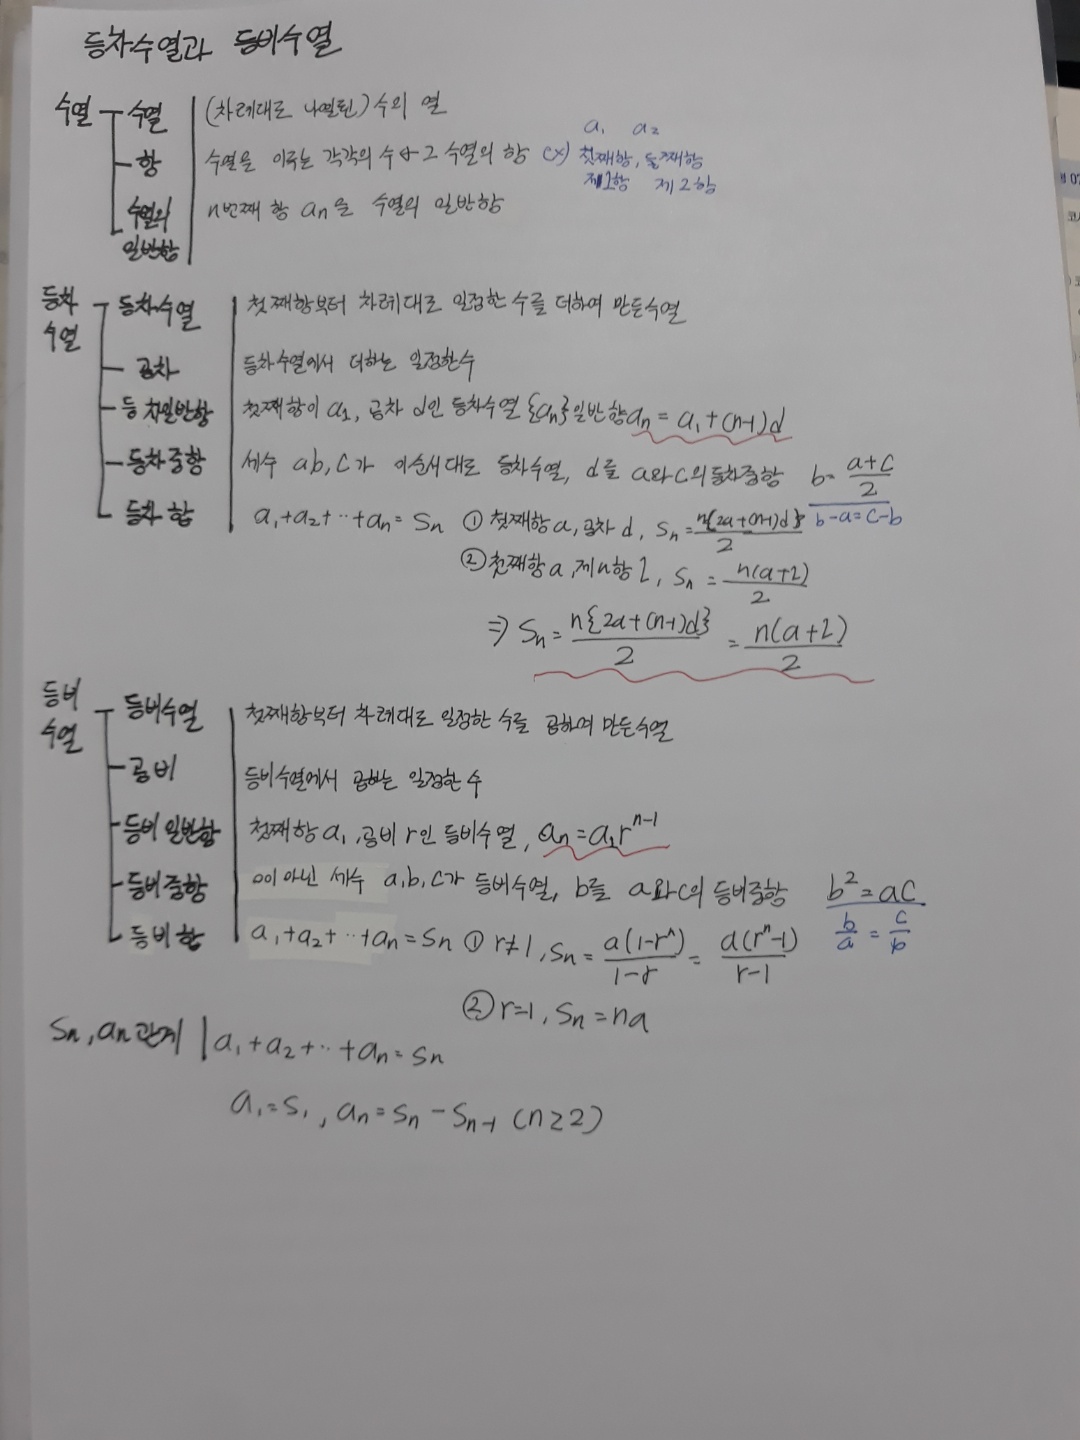 등차수열과 등비수열
수열 수열 (차례대로 나열된) 수의 열
a₁ a₂
항 수열을 이루는 각각의 수 → 그 수열의 항 ex) 첫째항, 둘째항
제1항 제2항
수열의 일반항 n번째 항 an을 수열의 일반항
등차수열 등차수열 첫째항부터 차례대로 일정한 수를 더하여 만든수열
공차 등차수열에서 더하는 일정한수
등차일반항 첫째항이 a₁, 공차 d인 등차수열 {an}일반항 an = a₁+(n-1)d
등차중항 세수 ab, c가 이순서대로 등차수열, d를 a와c의 등차중항 b= (a+c)/2
b-a=c-b
등차합 a₁+a₂+…+an=Sn ① 첫째항 a, 공차 d, Sn=n{2a+(n-1)d}/2
② 첫째항 a, 제n항 l, Sn = n(a+l)/2
⇒ Sn = n{2a+(n-1)d}/2 = n(a+l)/2
등비수열 등비수열 첫째항부터 차례대로 일정한 수를 곱하여 만든수열
공비 등비수열에서 곱하는 일정한 수
등비 일반항 첫째항 a₁, 공비 r인 등비수열, an=a₁rⁿ⁻¹
등비중항 0이 아닌 세수 a,b,c가 등비수열, b를 a와c의 등비중항 b²=ac
b/a = c/b
등비합 a₁+a₂+…+an=Sn ① r≠1, Sn = a(1-rⁿ)/1-r = a(rⁿ-1)/r-1
② r=1, Sn=na
Sn, an 관계 a₁+a₂+…+an=Sn
a₁=S₁, an=Sn-Sn-1 (n≥2)